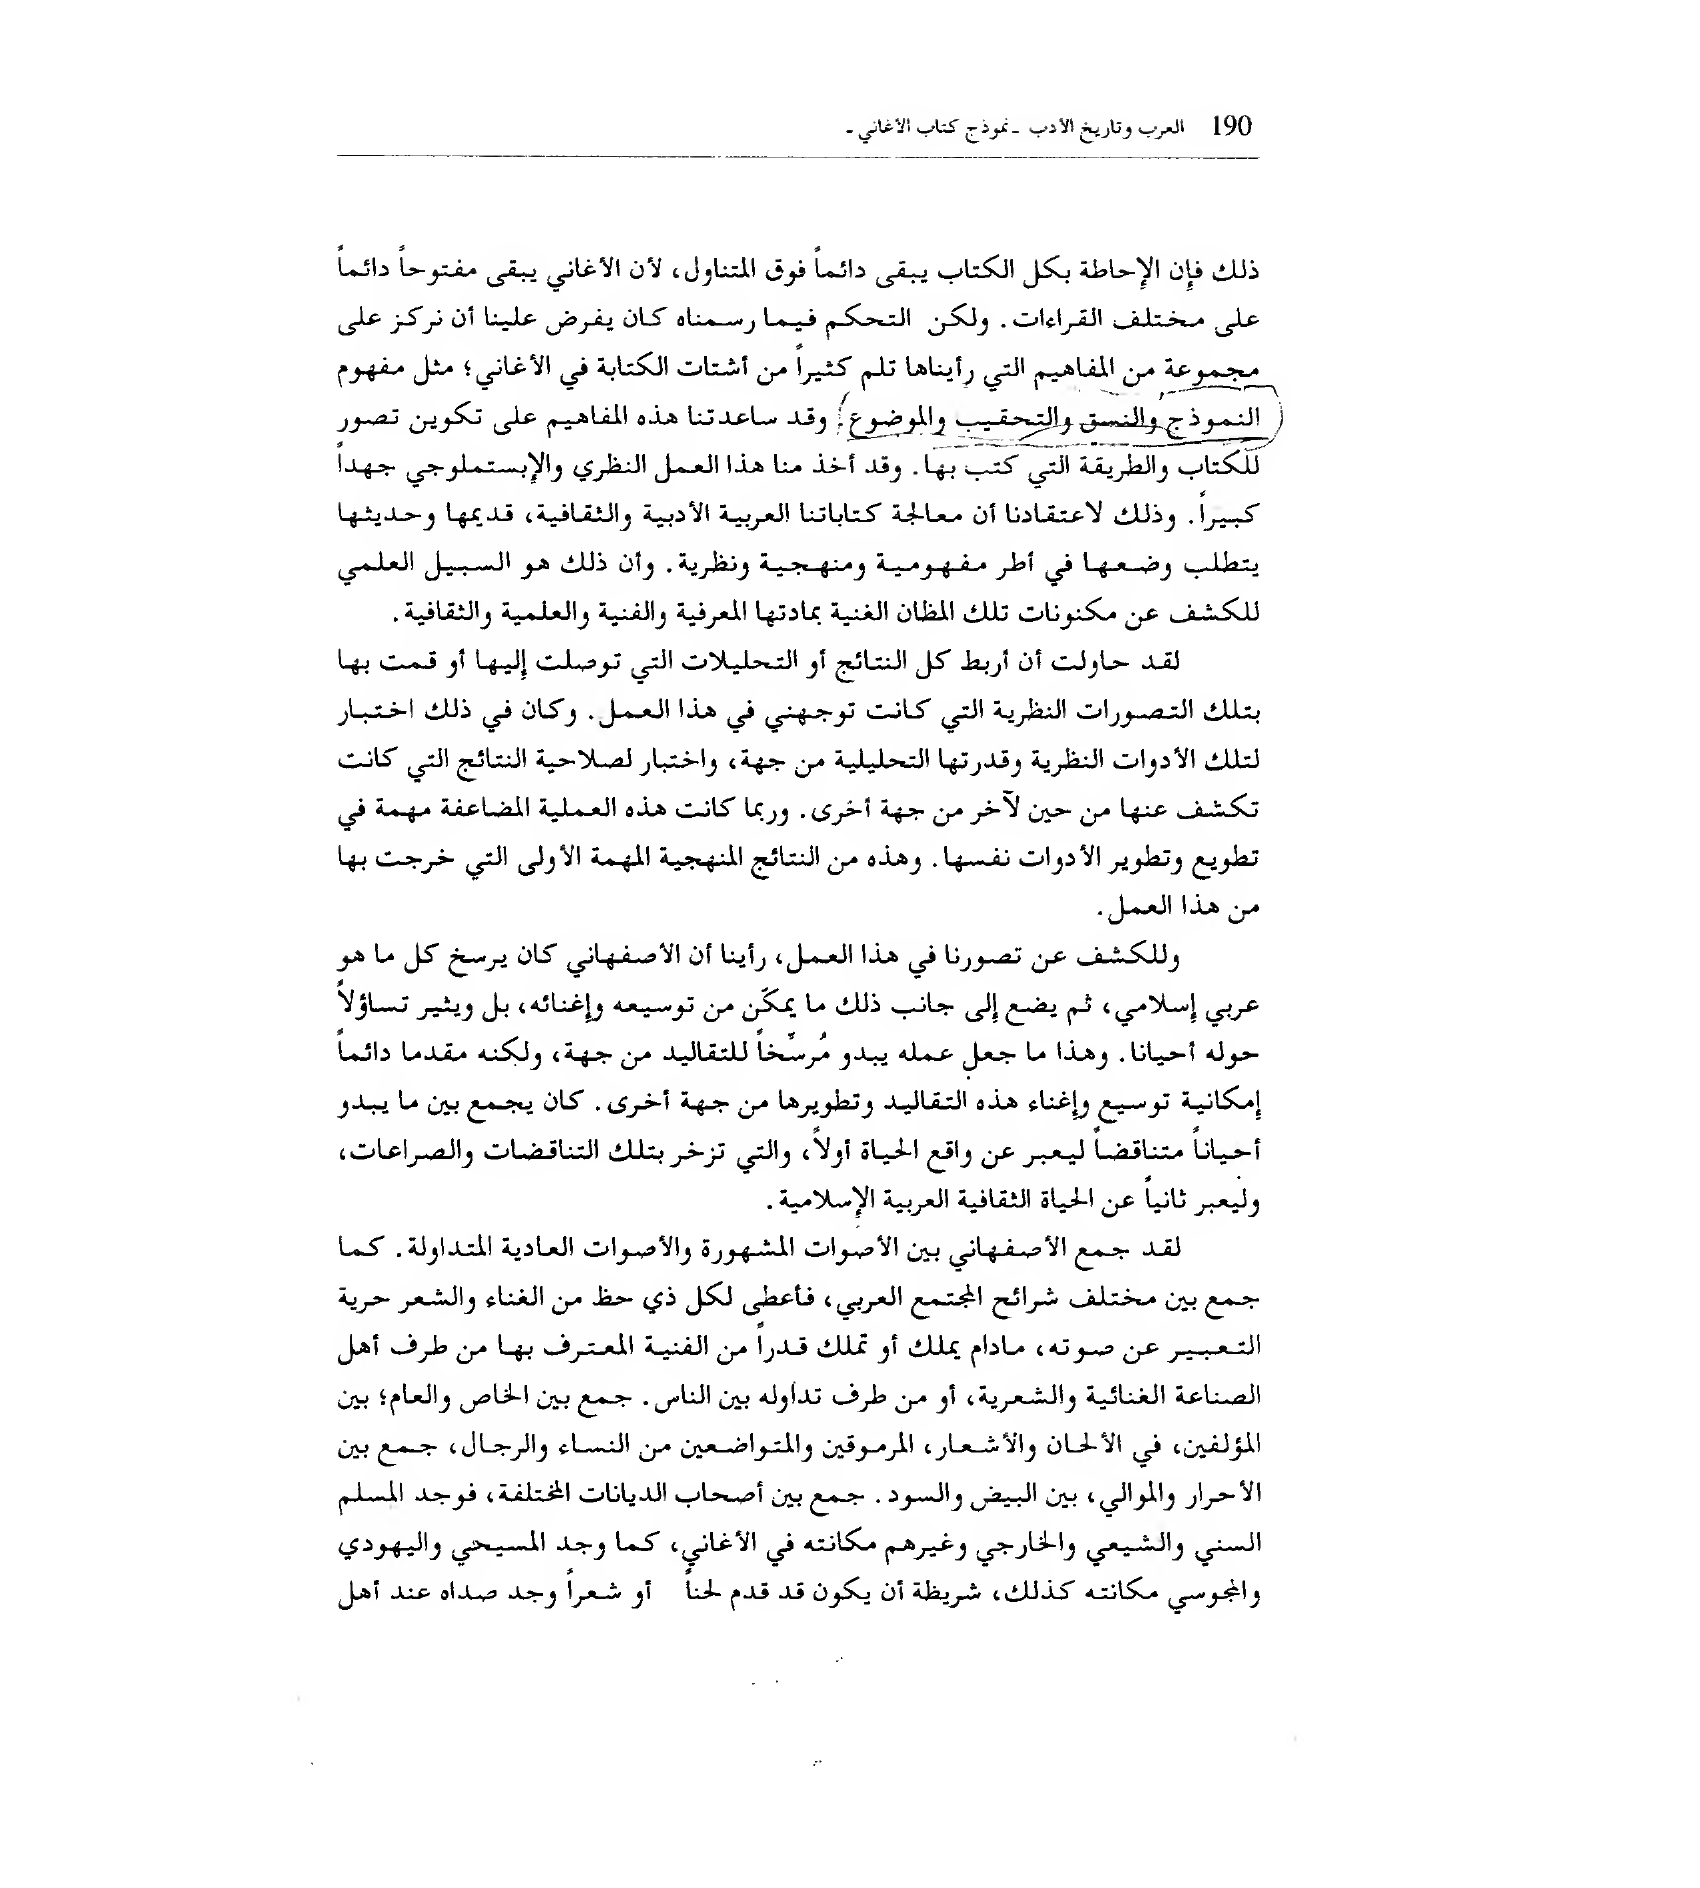 190 العرب وتاريخ الأدب - نموذج كتاب الأغاني -
ذلك فإن الإحاطة بكل الكتاب يبقى دائماً فوق المتناول، لأن الأغاني يبقى مفتوحاً دائماً
على مختلف القراءات. ولكن التحكم فيما رسمناه كان يفرض علينا أن نركز على
مجموعة من المفاهيم التي رأيناها تلم كثيراً من أشتات الكتابة في الأغاني؛ مثل مفهوم
النموذج والنسق والتحقيب والموضوع. وقد ساعدتنا هذه المفاهيم على تكوين تصور
للكتاب والطريقة التي كتب بها. وقد أخذ منا هذا العمل النظري والإبستملوجي جهداً
كبيراً. وذلك لاعتقادنا أن معالجة كتاباتنا العربية الأدبية والثقافية، قديمها وحديثها
يتطلب وضعها في أطر مفهومية ومنهجية ونظرية. وأن ذلك هو السبيل العلمي
للكشف عن مكنونات تلك المظان الغنية بمادتها المعرفية والفنية والعلمية والثقافية.
لقد حاولت أن أربط كل النتائج أو التحليلات التي توصلت إليها أو قمت بها
بتلك التصورات النظرية التي كانت توجهني في هذا العمل. وكان في ذلك اختبار
لتلك الأدوات النظرية وقدرتها التحليلية من جهة، واختبار لصلاحية النتائج التي كانت
تكشف عنها من حين لآخر من جهة أخرى. وربما كانت هذه العملية المضاعفة مهمة في
تطويع وتطوير الأدوات نفسها. وهذه من النتائج المنهجية المهمة الأولى التي خرجت بها
من هذا العمل.
وللكشف عن تصورنا في هذا العمل، رأينا أن الأصفهاني كان يرسخ كل ما هو
عربي إسلامي، ثم يضع إلى جانب ذلك ما يمكّن من توسيعه وإغنائه، بل ويثير تساؤلاً
حوله أحيانا. وهذا ما جعل عمله يبدو مُرسِّخاً للتقاليد من جهة، ولكنه مقدما دائماً
إمكانية توسيع وإغناء هذه التقاليد وتطويرها من جهة أخرى. كان يجمع بين ما يبدو
أحياناً متناقضاً ليعبر عن واقع الحياة أولاً، والتي تزخر بتلك التناقضات والصراعات،
وليعبر ثانياً عن الحياة الثقافية العربية الإسلامية.
لقد جمع الأصفهاني بين الأصوات المشهورة والأصوات العادية المتداولة. كما
جمع بين مختلف شرائح المجتمع العربي، فأعطى لكل ذي حظ من الغناء والشعر حرية
التعبير عن صوته، مادام يملك أو تملك قدراً من الفنية المعترف بها من طرف أهل
الصناعة الغنائية والشعرية، أو من طرف تداوله بين الناس. جمع بين الخاص والعام؛ بين
المؤلفين، في الألحان والأشعار، المرموقين والمتواضعين من النساء والرجال، جمع بين
الأحرار والموالي، بين البيض والسود. جمع بين أصحاب الديانات المختلفة، فوجد المسلم
السني والشيعي والخارجي وغيرهم مكانته في الأغاني، كما وجد المسيحي واليهودي
والمجوسي مكانته كذلك، شريظة أن يكون قد قدم لحناً أو شعراً وجد صداه عند أهل